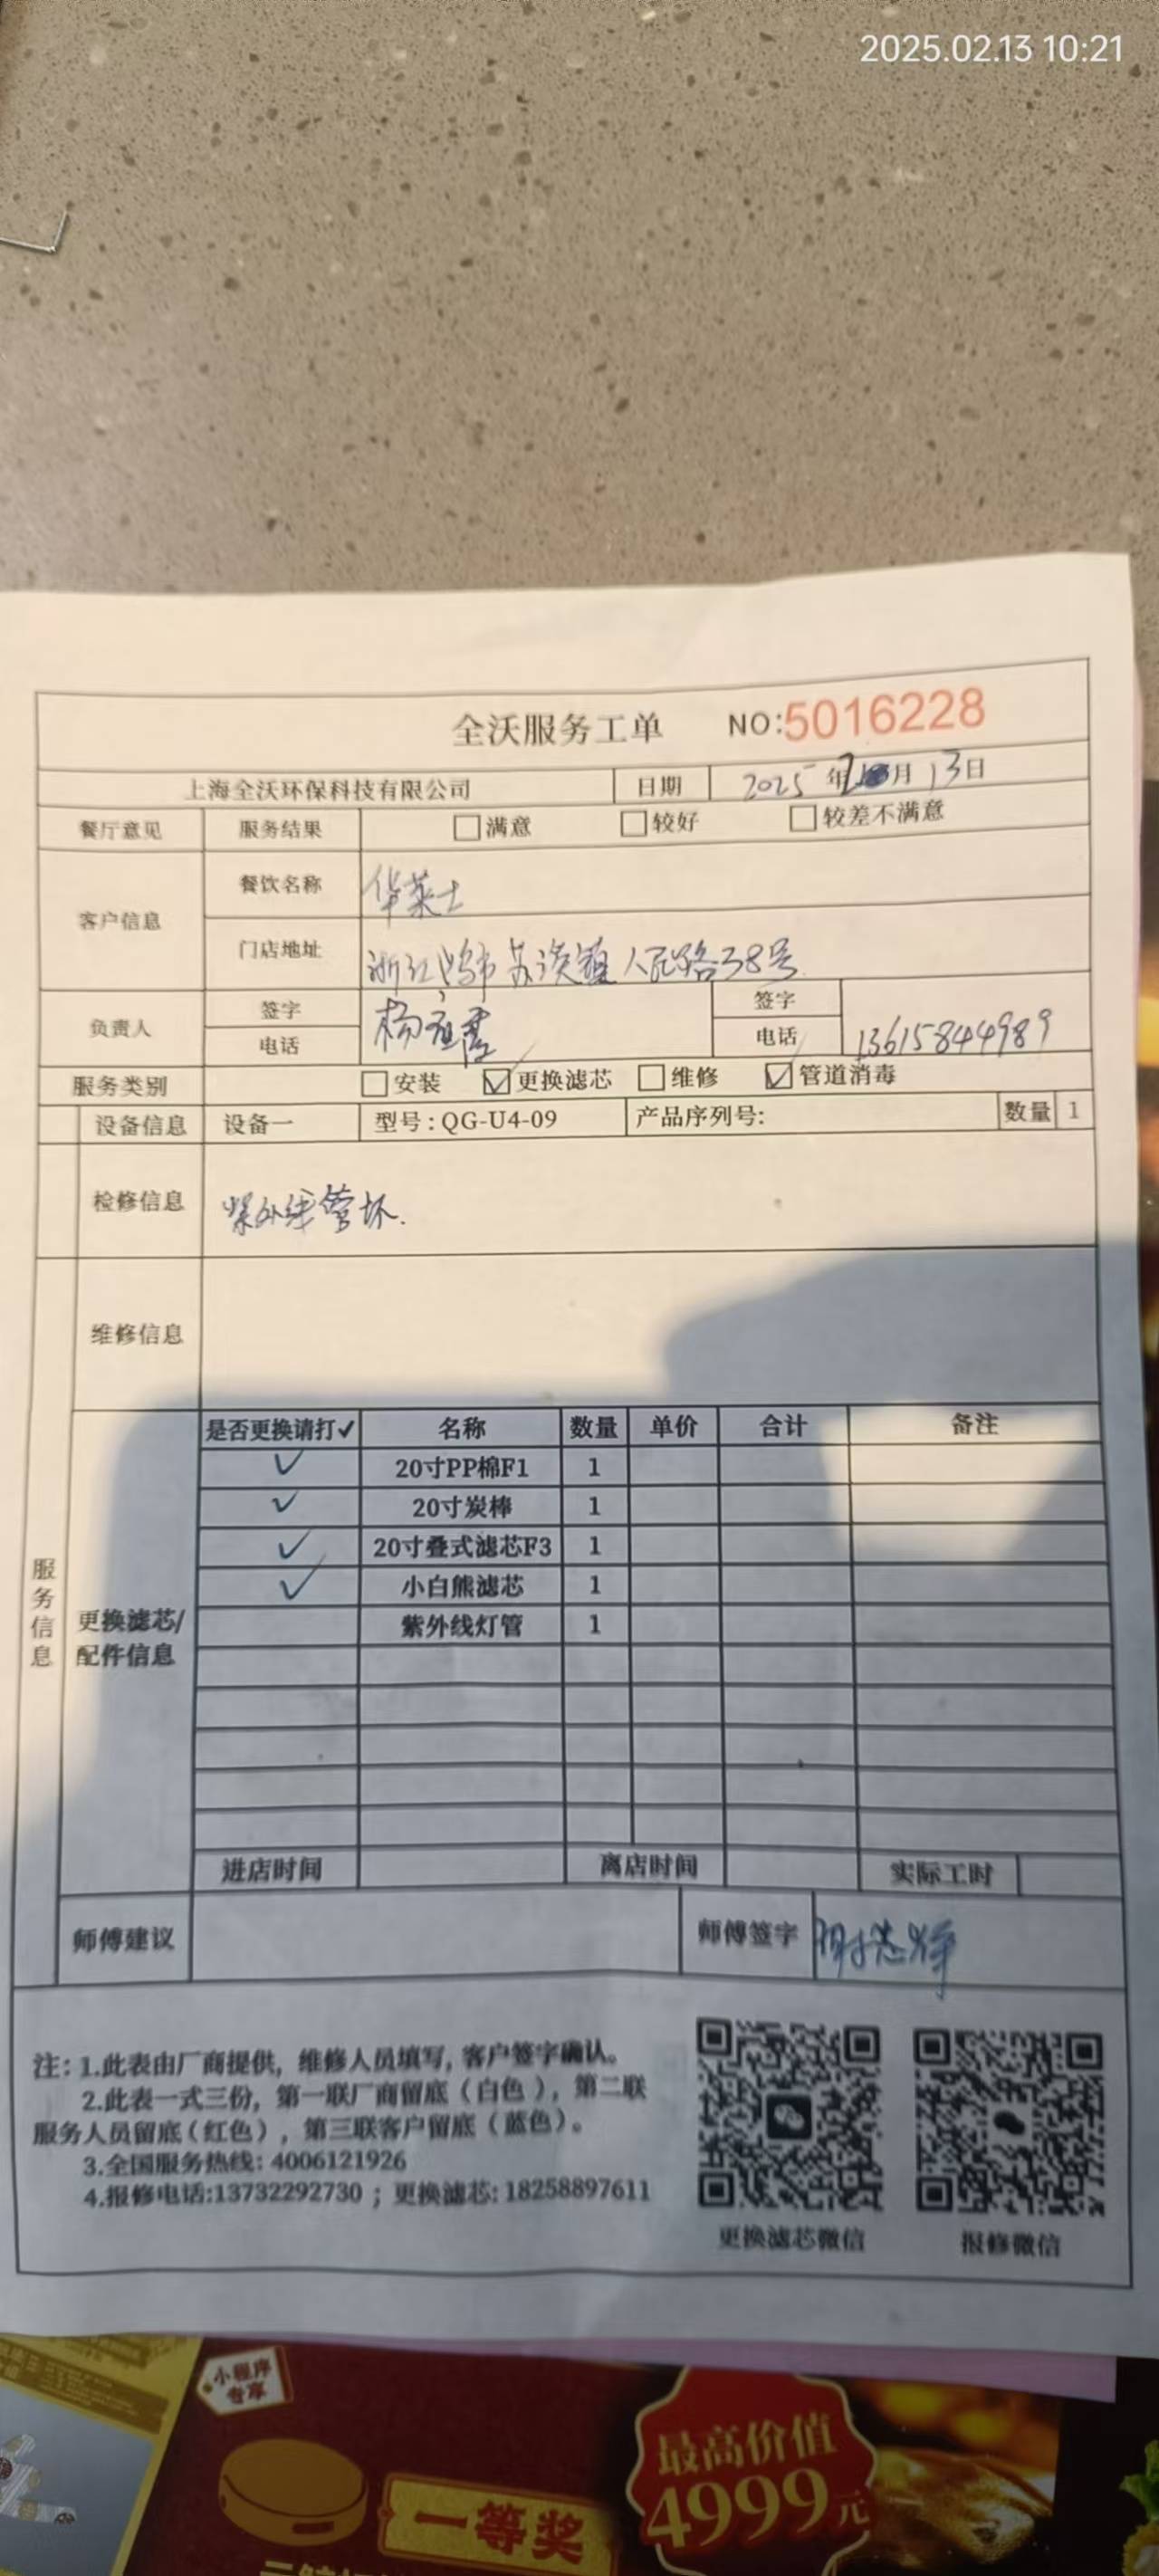 2025.02.13 10:21
全沃服务工单 NO:5016228
上海全沃环保科技有限公司 日期 2025年2月13日
餐厅意见 服务结果 满意 较好 较差不满意
客户信息 餐饮名称 华莱士
门店地址 浙江义乌市苏溪镇人民路38号
负责人 签字 杨 签字
电话 电话 13615844989
服务类别 安装 ✓更换滤芯 维修 ✓管道消毒
设备信息 设备一 型号:QG-U4-09 产品序列号: 数量 1
检修信息 紫外线管坏.
维修信息
服务信息
更换滤芯/配件信息
是否更换请打✓ 名称 数量 单价 合计 备注
✓ 20寸PP棉F1 1
✓ 20寸炭棒 1
✓ 20寸叠式滤芯F3 1
✓ 小白熊滤芯 1
紫外线灯管 1
进店时间 离店时间 实际工时
师傅建议 师傅签字
注: 1.此表由厂商提供, 维修人员填写, 客户签字确认。
2.此表一式三份, 第一联厂商留底(白色), 第二联
服务人员留底(红色), 第三联客户留底(蓝色)。
3.全国服务热线: 4006121926
4.报修电话:13732292730 ; 更换滤芯: 18258897611
更换滤芯微信 报修微信
小程序
专享
一等奖
最高价值
4999元